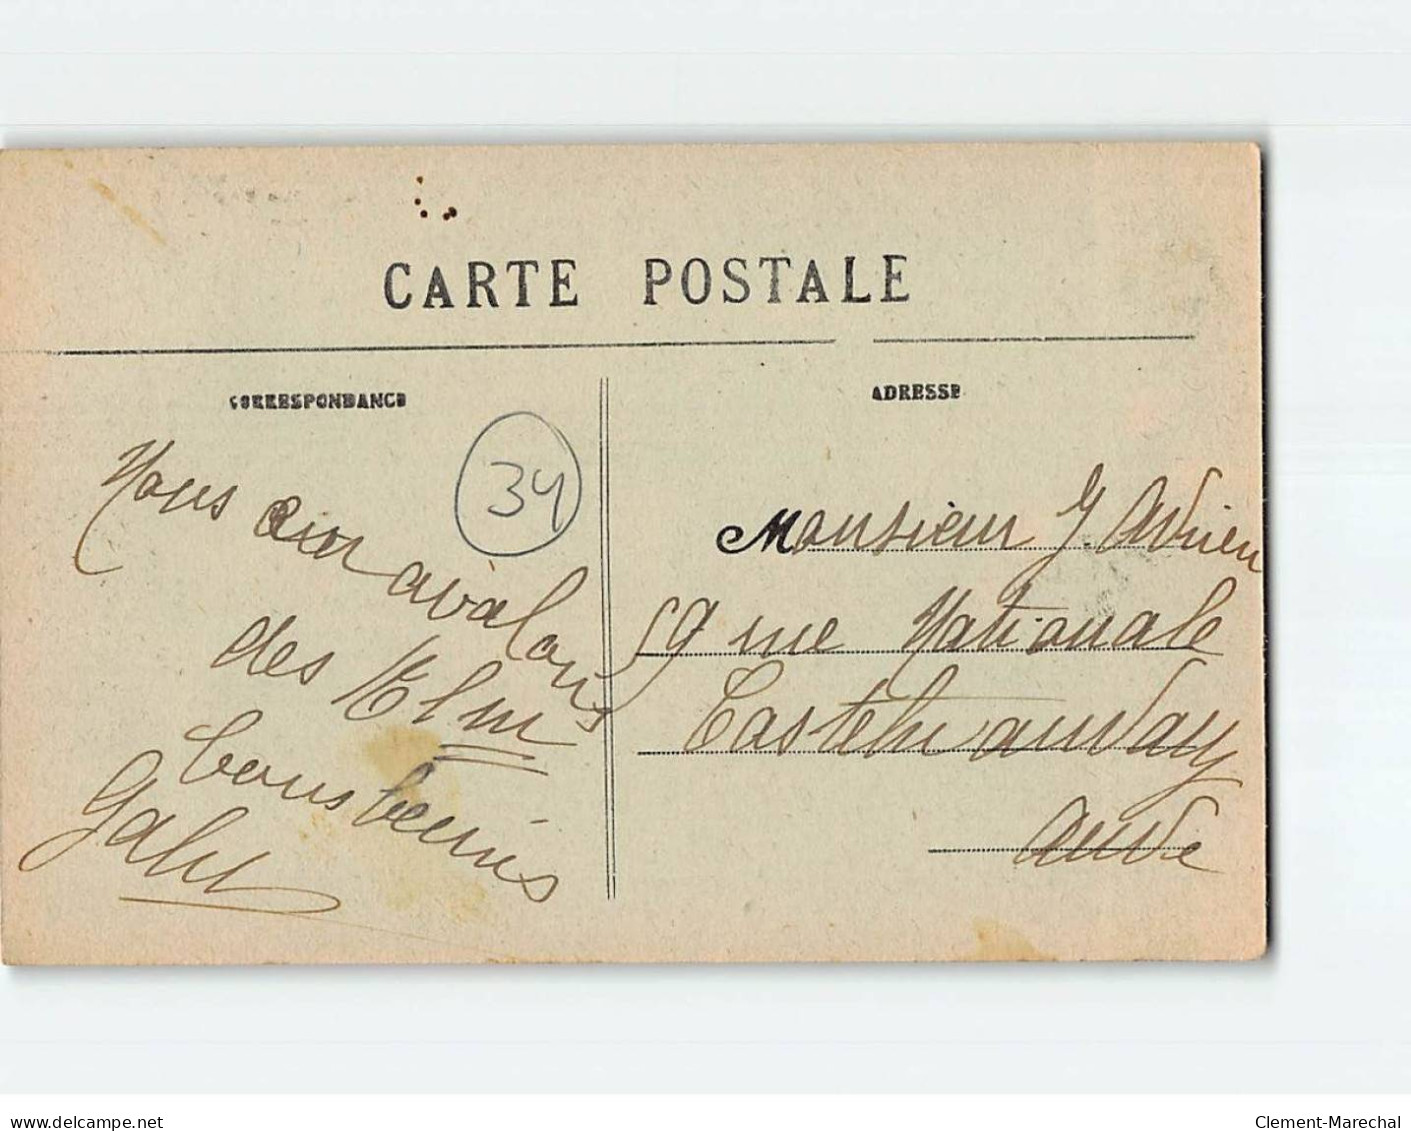 CARTE POSTALE
CORRESPONDANCE
ADRESSE
34
Nous en avalons
des Klm
bous
Monsieur J. Adrien
59 rue Nationale
Castelnaudary
Aude
www.delcampe.net
Clement-Marechal